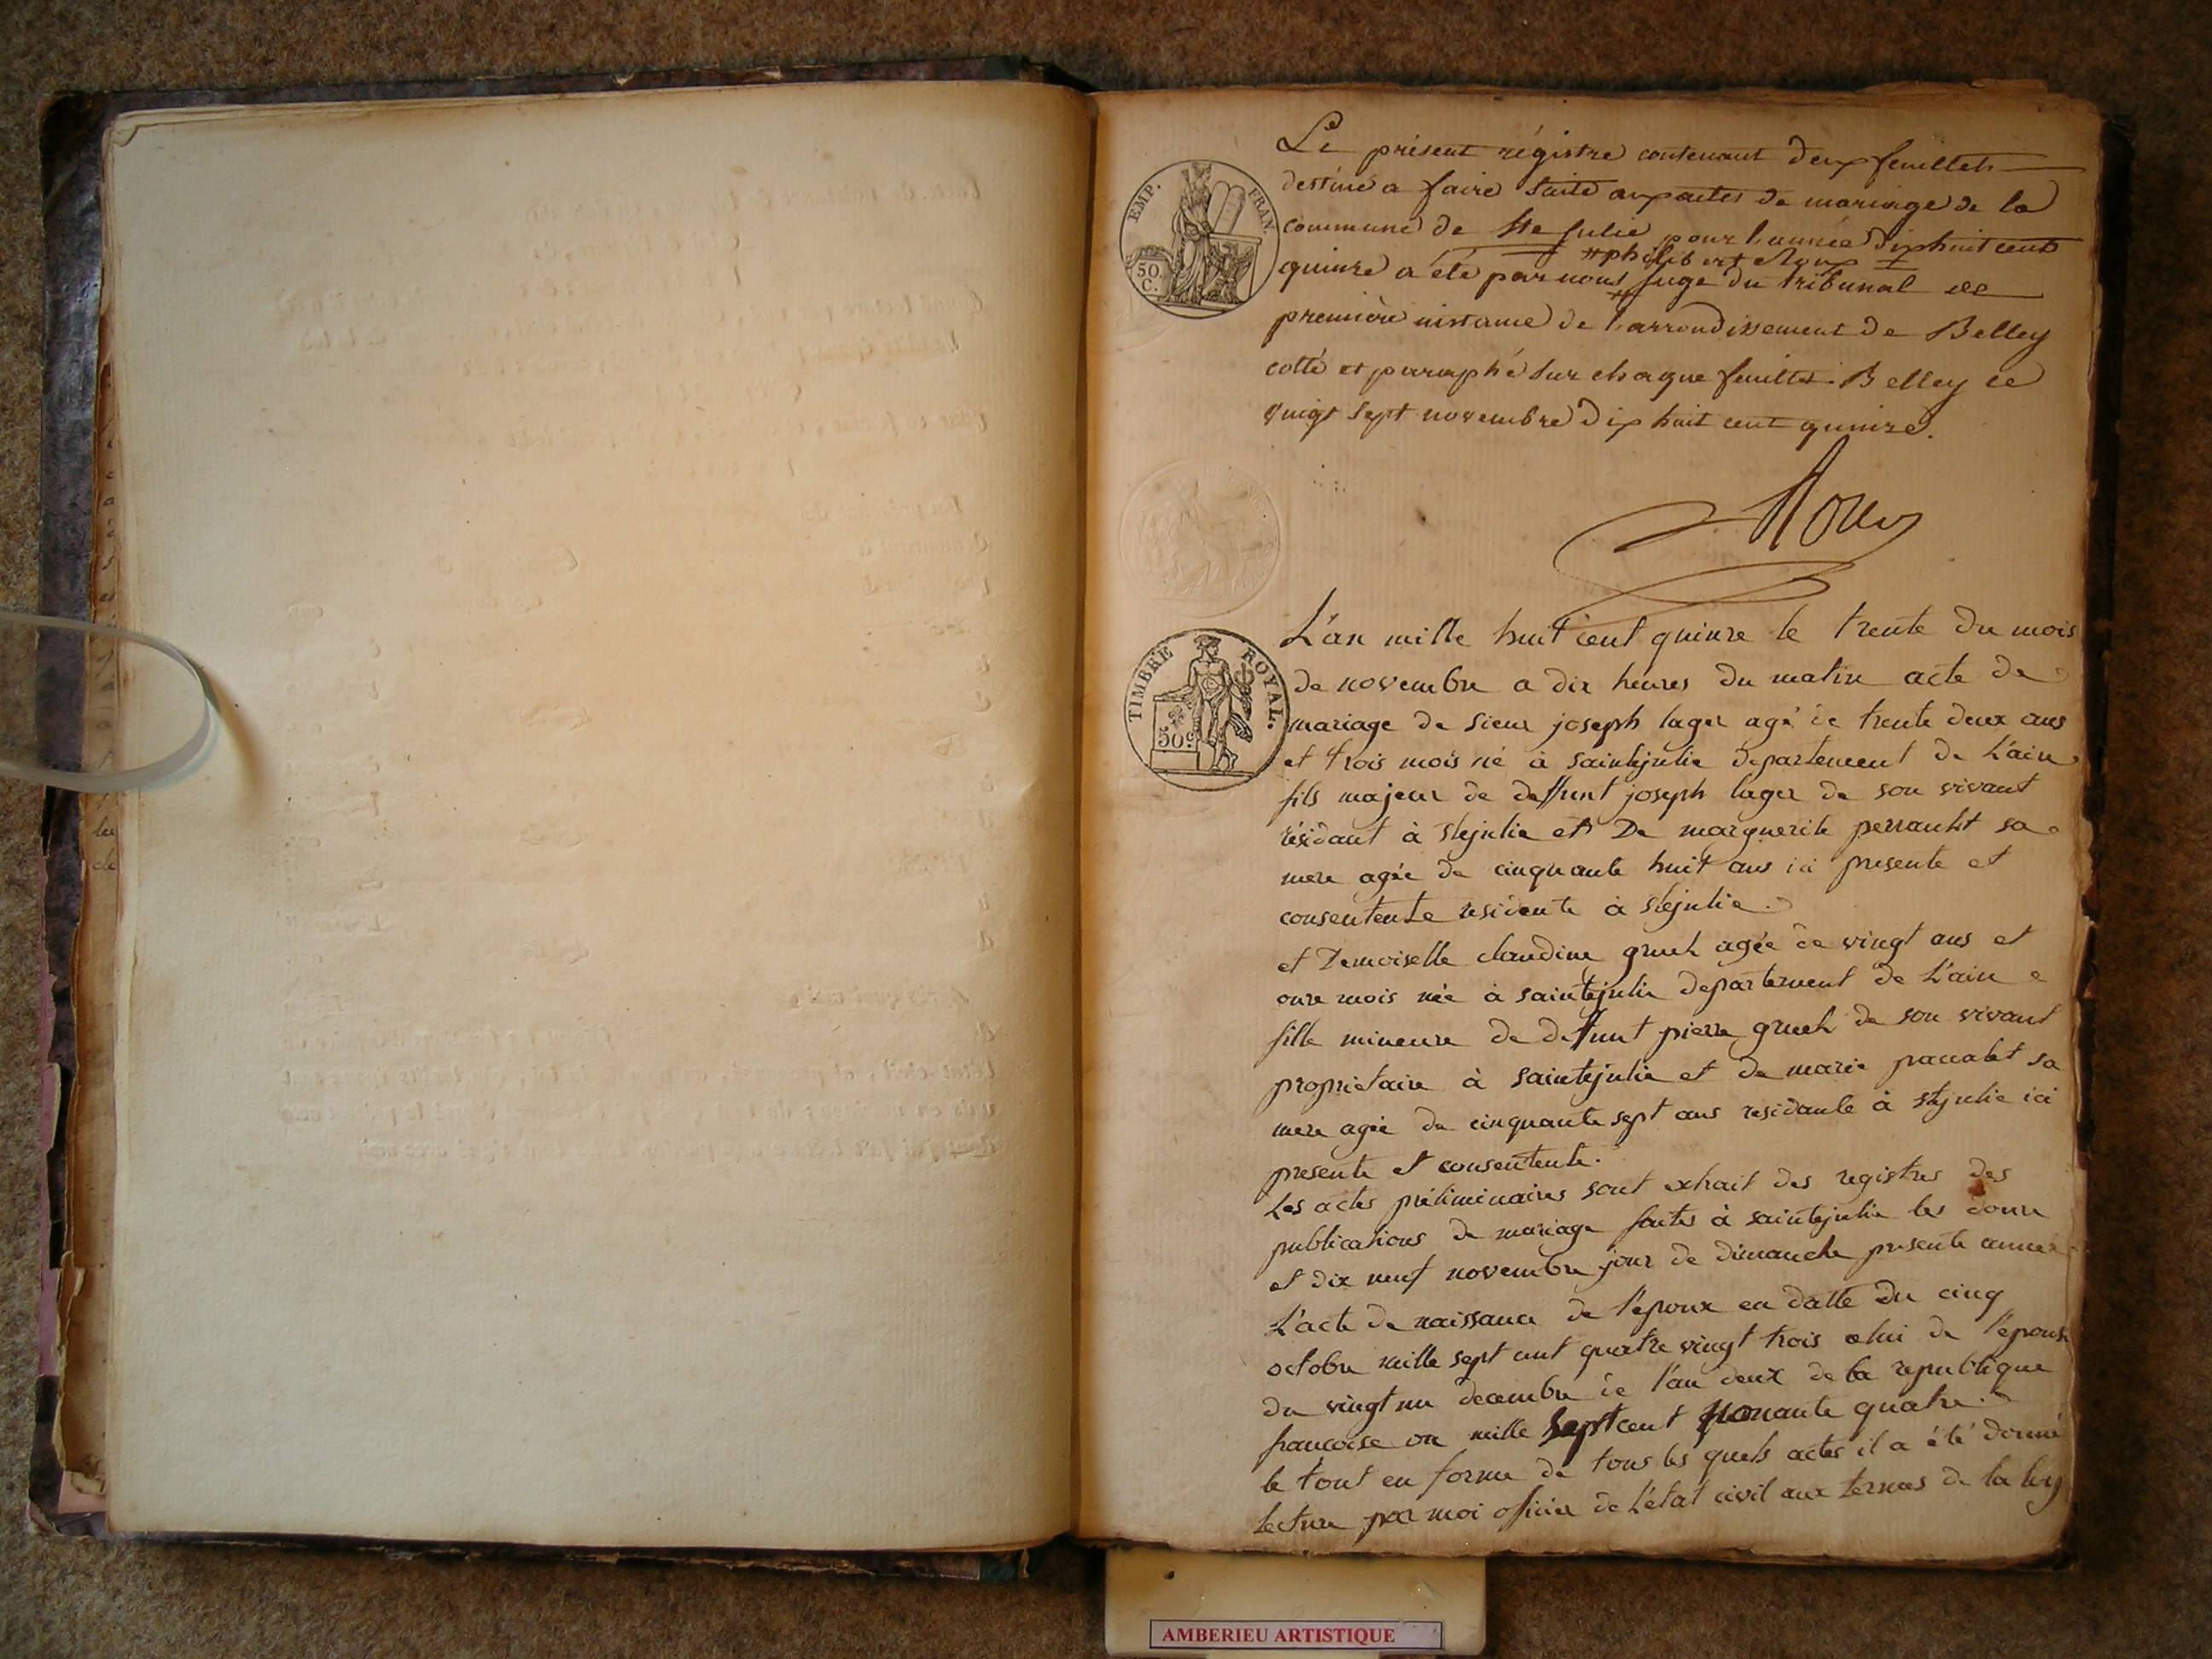 Le présent régistre contenant deux feuillets
destiné a faire suite aux actes de mariage de la
commune de Ste Julie pour l'année dixhuit cent
#philibert
quinze a été par nous # juge du tribunal de
première instance de l'arrondissement de Belley
cotté et paraphé sur chaque feuillet. Belley le
vingt sept novembre dix huit cent quinze.
EMP. FRAN.
50.
C.
L'an mille huit cent quinze le trente du mois
de novembre a dix heures du matin acte de
mariage de sieur joseph lager agé de trente deux ans
et trois mois né à saintejulie departement de L'ain
fils majeur de deffunt joseph lager de son vivant
résidant à stejulie et De marguerite perrault sa
mere agée de cinquante huit ans ici presente et
consentente residente à stejulie.
et Demoiselle claudine gruel agée de vingt ans et
onze mois née à saintejulie departement de L'ain
fille mineure de deffunt pierre gruel de son vivant
proprietaire à saintejulie et de marie sa
mere agée de cinquante sept ans residante à stejulie ici
presente et consentente.
Les actes préliminaires sont extrait des registres des
publications de mariage faites à saintejulie les douze
et dix neuf novembre jour de dimanche presente année
L'acte de naissance de l'epoux en datte du cinq
octobre mille sept cent quatre vingt trois celui de l'epouse
du vingt un decembre de l'an deux de la republique
francoise ou mille sept cent nonante quatre.
le tout en forme de tous les quels actes il a été donné
lecture par moi officier de L'état civil aux termes de la loy
TIMBRE ROYAL.
50c.
AMBERIEU ARTISTIQUE